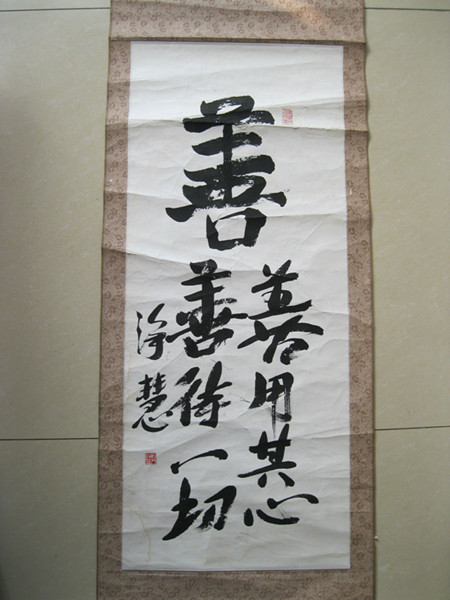 善
善用其心
善待一切
淨慧